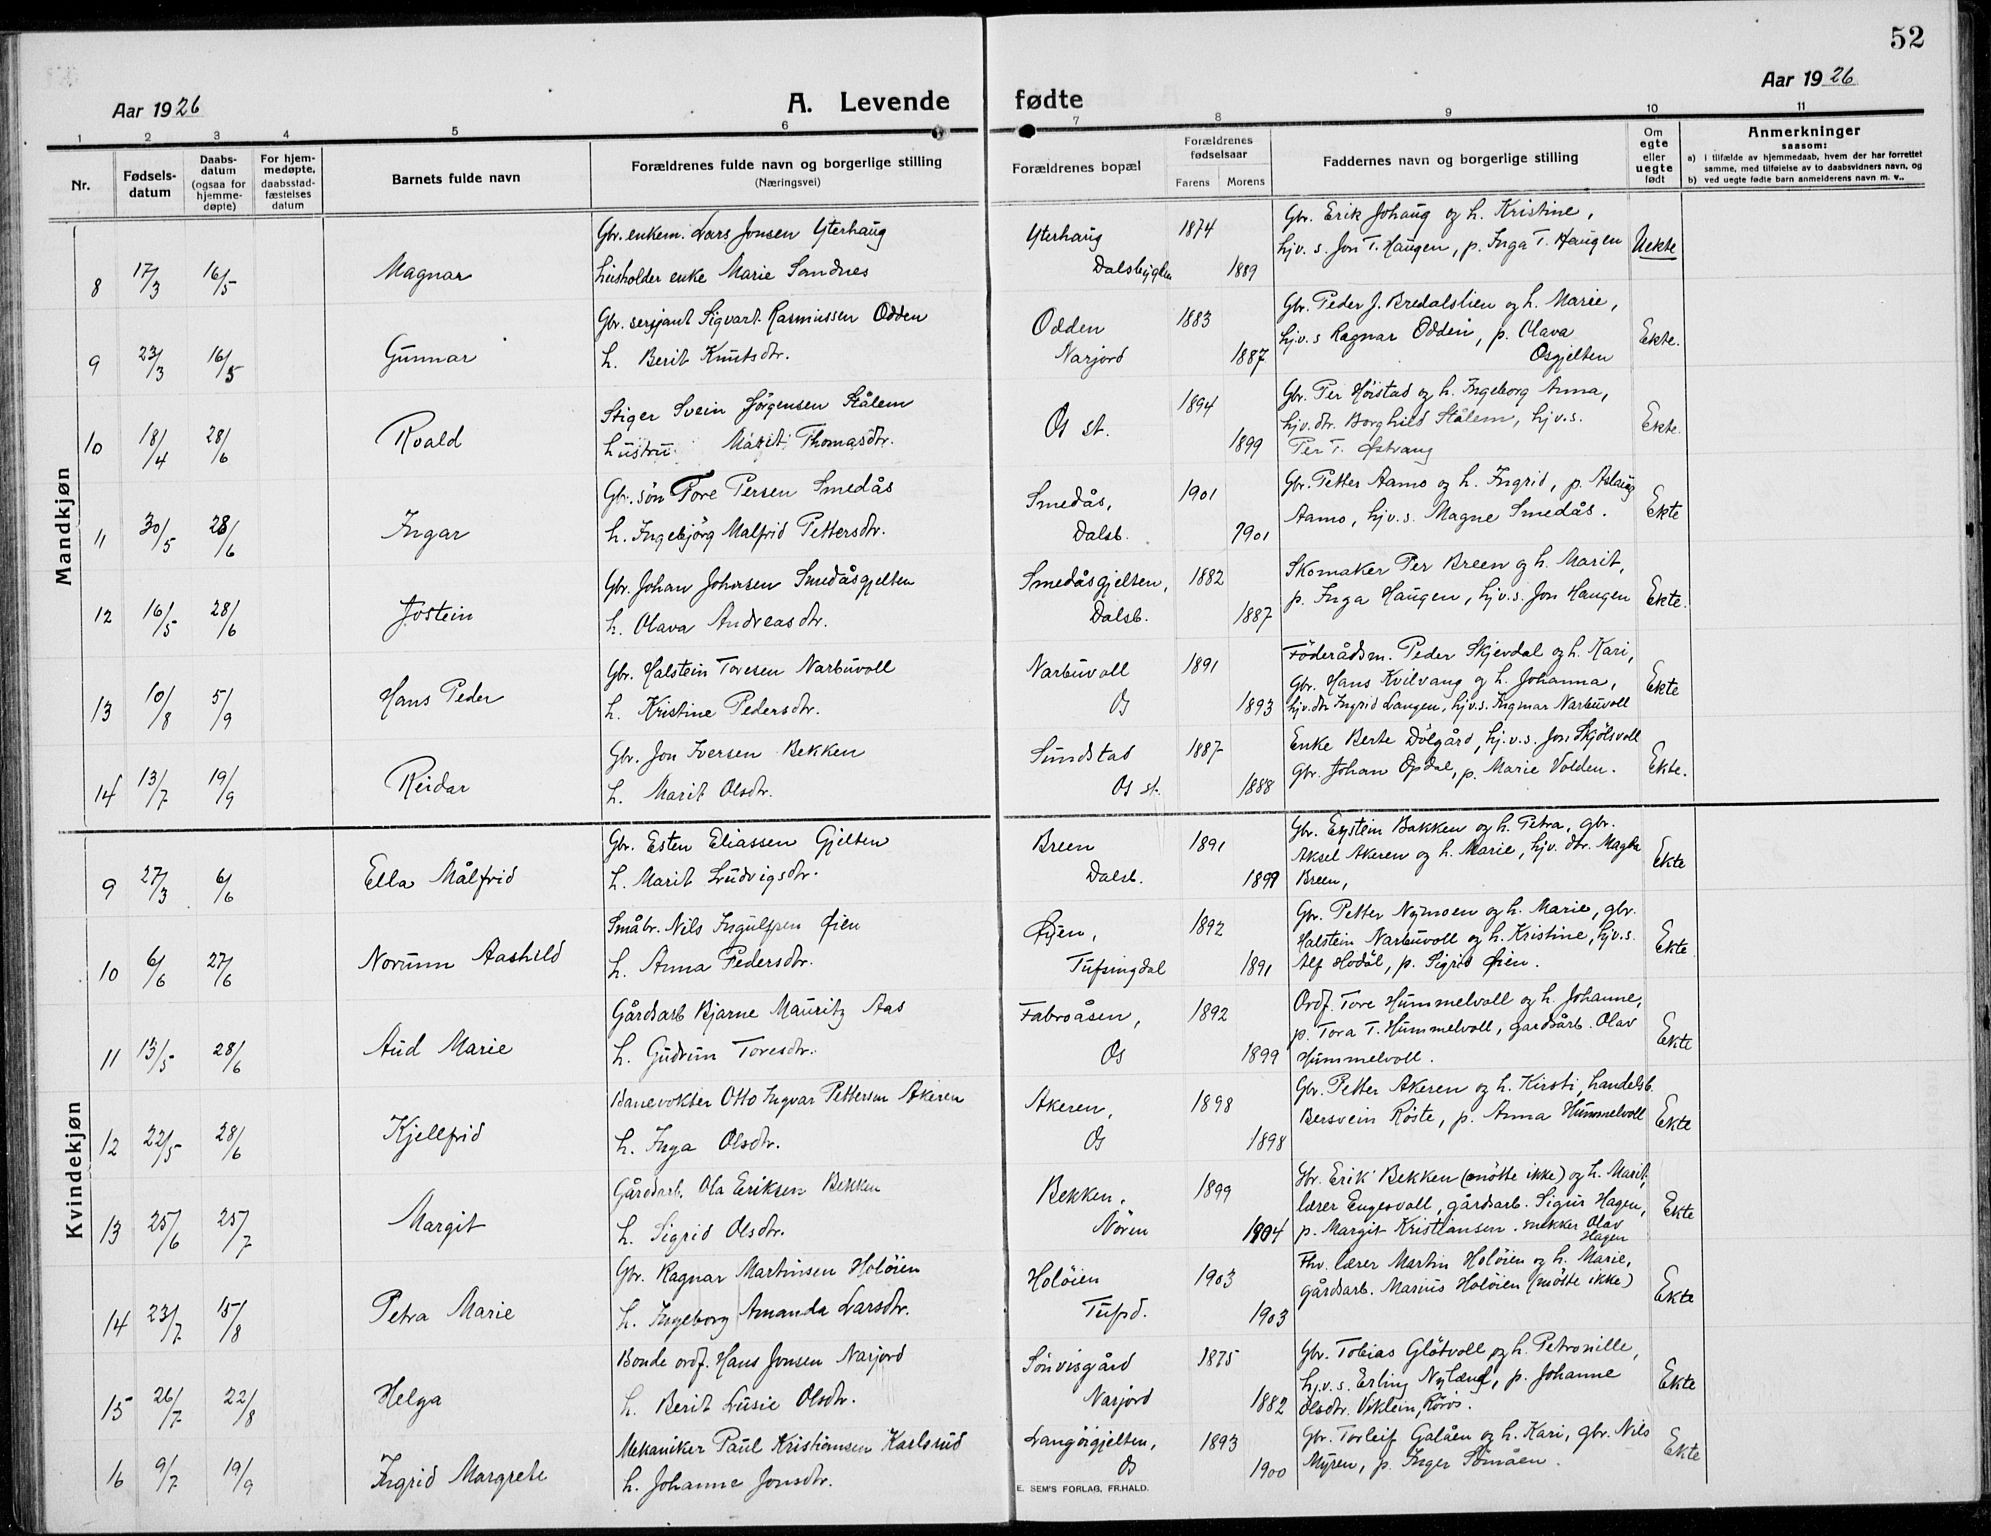 52
Aar 1926
A. Levende fødte
Aar 1926
1 2 3 4 5 6 7 8 9 10 11
Nr.
Fødsels-datum
Daabs-datum (ogsaa for hjemme-døpte)
For hjem-medøpte, daabsstad-fæstelses datum
Barnets fulde navn
Forældrenes fulde navn og borgerlige stilling (Næringsvei)
Forældrenes bopæl
Forældrenes fødselsaar
Farens Morens
Faddernes navn og borgerlige stilling
Om egte eller uegte født
Anmerkninger
saasom:
a) i tilfælde av hjemmedaab, hvem der har forrettet samme, med tilføielse av to daabsvidners navn, og
b) ved uegte fødte barn anmelderens navn m. v..
Mandkjøn
Gbr. enkem. Lars Jonsen Yterhaug Yterhaug 1874 Gbr. Erik Johaug og h. Kristine,
8 17/3 16/5 Magnar husholder enke Marie Sandnes Dalsbygden 1889 hjv. s. Jon T. Haugen, p. Inga T. Haugen Uekte
Gbr. sersjant Sigvart Rasmussen Odden Odden 1883 Gbr. Peder J. Bredalslien og h. Marie,
9 23/3 16/5 Gunnar h. Berit Knutsdtr. Narjord 1887 hjv. s Ragnar Odden, p. Olava Osgjelten Ekte.
Stiger Svein Jörgensen Stålem Os st. 1894 Gbr. Per Höistad og h. Ingeborg Anna,
10 18/4 28/6 Roald hustru Marit Thomasdtr. 1899 hjv. dtr. Borghild Stålem, hjv. s. Ekte.
Per T. Østvang
Gbr. sön Tore Persen Smedås Smedås, 1901 Gbr. Petter Aamo og h. Ingrid, p. Aslaug
11 30/5 28/6 Ingar h. Ingebjörg Malfrid Pettersdtr. Dalsb. 1901 Aamo, hjv. s. Magne Smedås. Ekte
Gbr. Johan Johnsen Smedåsgjelten Smedåsgjelten, 1882 Skomaker Per Breen og h. Marit,
12 16/5 28/6 Jostein h. Olava Andreasdtr. Dalsb. 1887 p. Inga Haugen, hjv. s. Jon Haugen Ekte.
Gbr. Halstein Toresen Narbuvoll Narbuvoll 1891 Föderådsm. Peder Skjevdal og h. Kari,
Gbr. Hans Kvilvang og h. Johanna,
13 10/8 5/9 Hans Peder h. Kristine Pedersdtr. Os 1893 hjv. dtr Ingrid Langen, hjv. s. Ingmar Narbuvoll Ekte
Gbr. Jon Iversen Bekken Sundstad 1887 Enke Berte Dölgård, hj. v. s. Jon Skjölsvoll
14 13/7 19/9 Reidar h. Marit Olsdtr. Os st. 1888 Gbr. Johan Opdal, p. Marie Volden. Ekte.
Kvindekjøn
Gbr. Esten Eliassen Gjelten Breen 1891 Gbr. Eystein Bakken og h. Petra, gbr.
Aksel Akeren og h. Marie, hjv. dtr. Magda
9 27/3 6/6 Ella Målfrid h. Marit Ludvigsdtr. Dalsb. 1899 Breen, Ekte
Småbr. Nils Ingulfsen Øien Øyen, 1892 Gbr. Petter Nymoen og h. Marie, gbr.
Halstein Narbuvoll og h. Kristine, hjv. s.
10 6/6 27/6 Norunn Aashild h. Anna Pedersdtr. Tufsingdal 1891 Alf Hodöl, p. Sigrid Øien. Ekte
Gårdsarb Bjarne Mauritz Aas Fabroåsen, 1892 Ordf. Tore Hummelvoll og h. Johanne,
p. Tora T. Hummelvoll, gardsårb. Olav
11 13/5 28/6 Aud Marie h. Gudrun Toresdtr. Os 1899 Hummelvoll. Ekte
Banevokter Otto Ingvar Pettersen Akeren Akeren, 1898 Gbr. Petter Akeren og h. Kirsti, handelsb.
12 22/5 28/6 Kjellfrid h. Inga Olsdtr. Os 1898 Bersvein Röste, p. Anna Hummelvoll Ekte
Gårdsarb. Ola Eriksen Bekken Bekken, 1899 Gbr. Erik Bekken (mötte ikke) og h. Marit,
lærer Engesvoll, gårdsarb. Sigur Hagen,
13 25/6 25/7 Margit h. Sigrid Olsdtr. Nören 1904 p. Margit Kristiansen. snekker Olav Hagen Ekte
Gbr. Ragnar Martinsen Holöien Holöien 1903 Fhv. lærer Martin Holöien og h. Marie,
14 23/7 15/8 Petra Marie h. Ingeborg Amanda Larsdtr. Tufsd. 1903 gårdsarb. Marius Holöien (mötte ikke) Ekte
Bonde ordf. Hans Jonsen Narjord Sönvisgård 1875 Gbr. Tobias Glötvoll og h. Petronille,
hj. v. s. Erling Nylænd, p. Johanne
15 26/7 22/8 Helga h. Berit Lusie Olsdtr. Narjord 1882 Olsdtr. Viktem, Röros. Ekte
Mekaniker Paul Kristiansen Karlsrud Langöigjelten, 1893 Gbr. Torleif Galåen og h. Kari, gbr. Nils
16 9/7 19/9 Ingrid Margrete h. Johanne Jonsdtr. Os 1900 Myren, p. Inger Sömåen. Ekte
E. SEM'S FORLAG, FR.HALD.